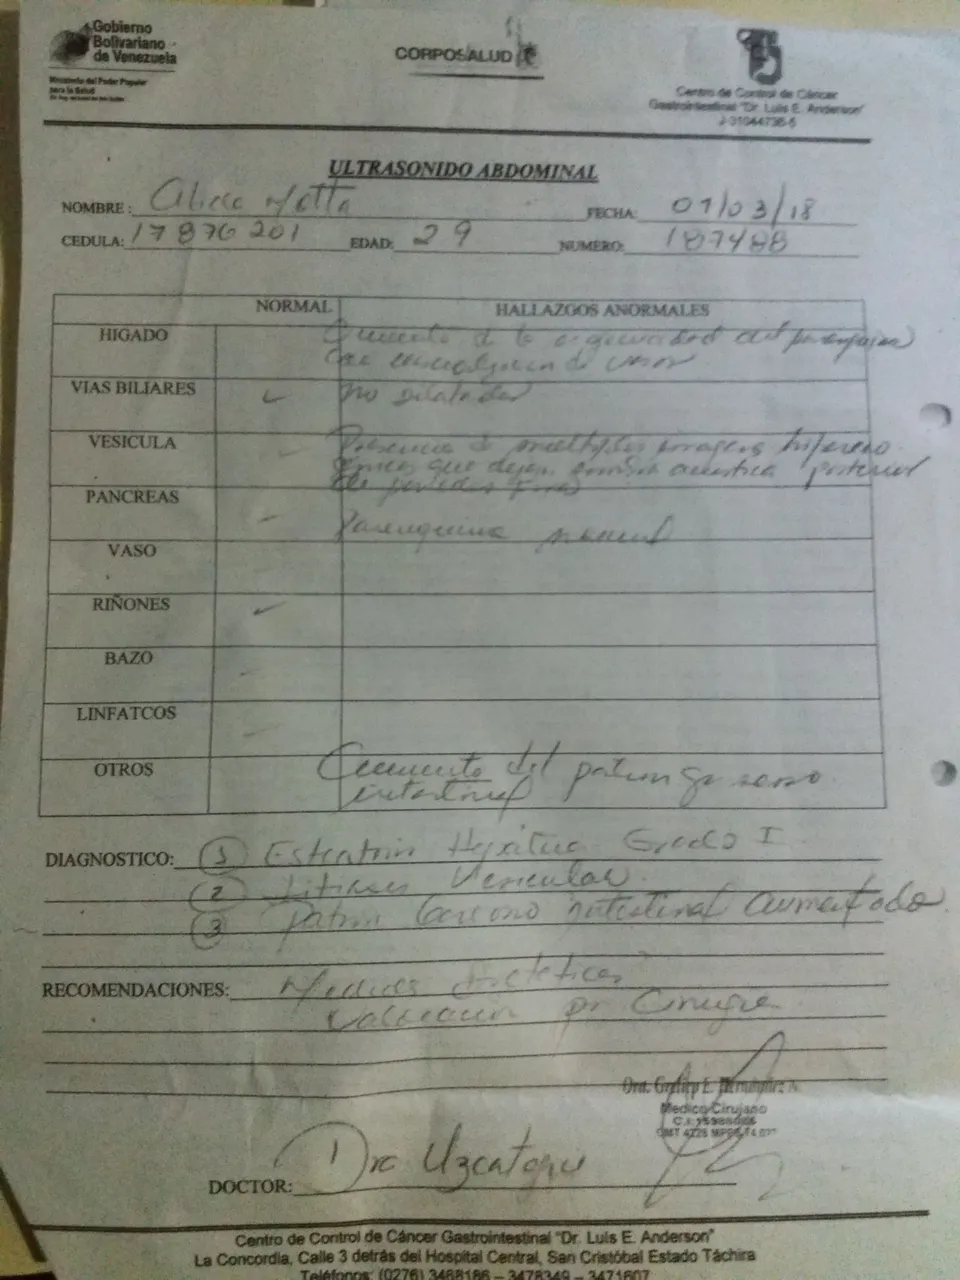 Gobierno
Bolivariano
de Venezuela
Ministerio del Poder Popular
para la Salud
CORPOSALUD
Centro de Control de Cáncer
Gastrointestinal "Dr. Luis E. Anderson"
J-31044736-5
ULTRASONIDO ABDOMINAL
NOMBRE: Matta
FECHA: 07/03/18
CEDULA: 17876201 EDAD: 29 NUMERO: 187488
NORMAL HALLAZGOS ANORMALES
HIGADO Aumento de la del
VIAS BILIARES no dilatadas
VESICULA Presencia de multiples imagenes
que dejan sombra acustica posterior
de paredes finas
PANCREAS Parenquima normal
VASO
RIÑONES
BAZO
LINFATCOS
OTROS Aumento del patron gaseoso
intestinal
DIAGNOSTICO: 1 Hepatica Grado I
2 Litiasis Vesicular
3 Patron Gaseoso intestinal aumentado
RECOMENDACIONES: Medidas Dieteticas
Valoracion por Cirugia
Médico Cirujano
DOCTOR: Dra Uzcategui
Centro de Control de Cáncer Gastrointestinal "Dr. Luis E. Anderson"
La Concordia, Calle 3 detrás del Hospital Central, San Cristóbal Estado Táchira
Teléfonos: (0276) 3468186 – 3478349 – 3471607